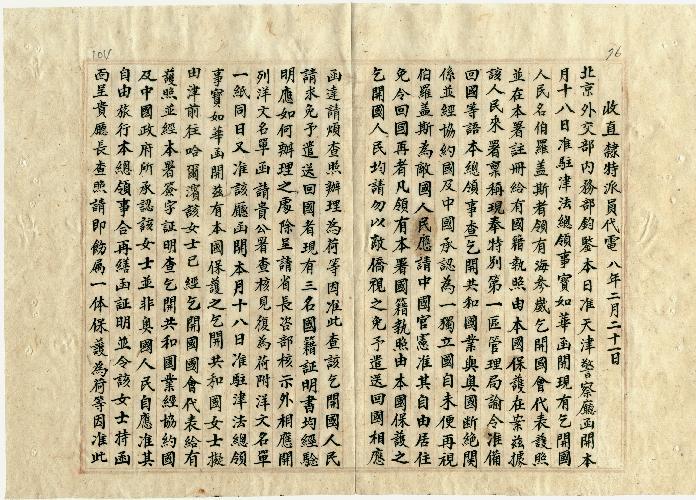 76
收直隸特派員代電 八年二月二十一日
北京外交部內務部鈞鑒本日准天津警察廳函開本
月十八日准駐津法總領事寶如華函開現有乞開國
人民名伯羅盖斯者領有海參崴乞開國會代表護照
並在本署註冊給有國籍執照由本國保護在案茲據
該人民來署稟稱現奉特別第一區管理局諭令准備
回國等語本總領事查乞開共和國業與奧國斷絶關
係並經協約國及中國承認為一獨立國自未便再視
伯羅盖斯為敵國人民應請中國官憲准其自由居住
免令回國再者凡領有本署國籍執照由本國保護之
乞開國人民均請勿以敵僑視之免予遣送回國相應
104
函達請煩查照辦理為荷等因准此查該乞開國人民
請求免予遣送回國者現有三名國籍証明書均經驗
明應如何辦理之處除呈請省長咨部核示外相應開
列洋文名單函請貴公署查核見復為荷附洋文名單
一紙同日又准該廳函開本月十八日准駐津法總領
事寶如華函開茲有本國保護之乞開共和國女士擬
由津前往哈爾濱該女士已經乞開國國會代表給有
護照並經本署簽字証明查乞開共和國業經協約國
及中國政府所承認該女士並非奧國人民自應准其
自由旅行本總領事合再繕函証明並令該女士持函
面呈貴廳長查照請即飭屬一体保護為荷等因准此